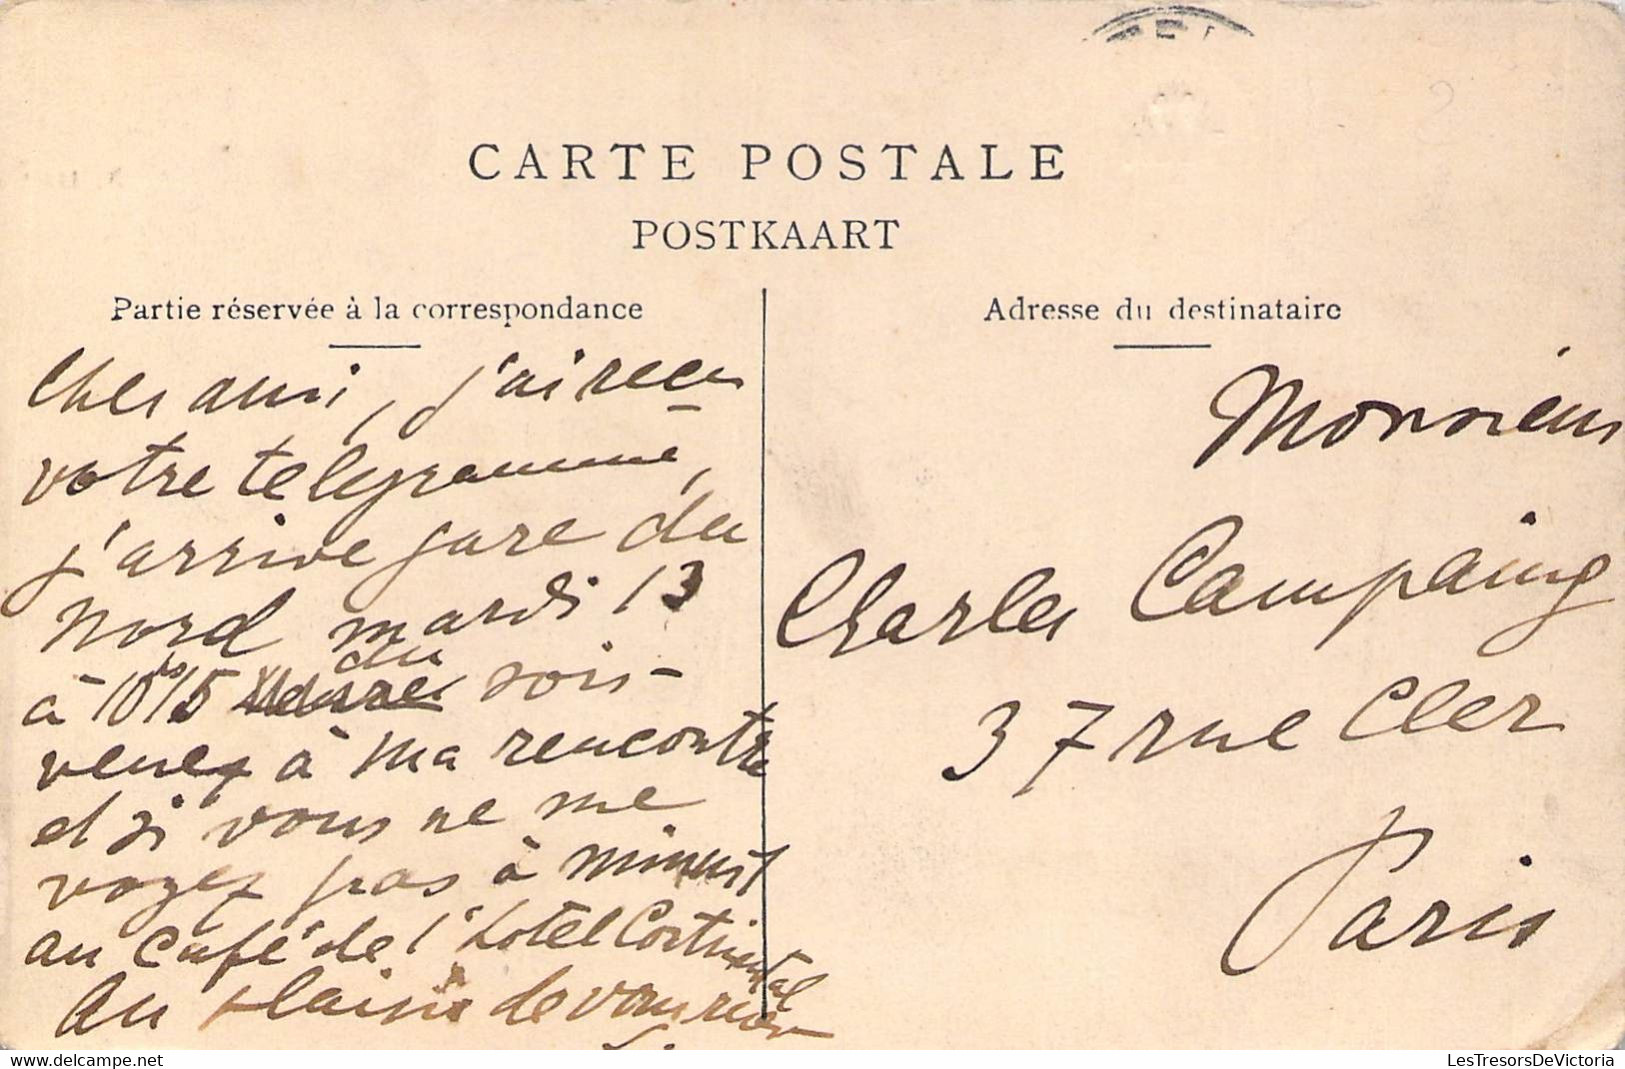 CARTE POSTALE
POSTKAART
Partie réservée à la correspondance
Cher ami, j'ai reçu
votre telegramme,
j'arrive gare du
Nord mardi 13
à 10 15 du soir -
venez à ma rencontre
et si vous ne me
voyez pas à minuit
au Café de l'hotel Continental
Au plaisir de vous revoir
Adresse du destinataire
Monsieur
Charles Campaing
37 rue Cler
Paris
LesTresorsDeVictoria